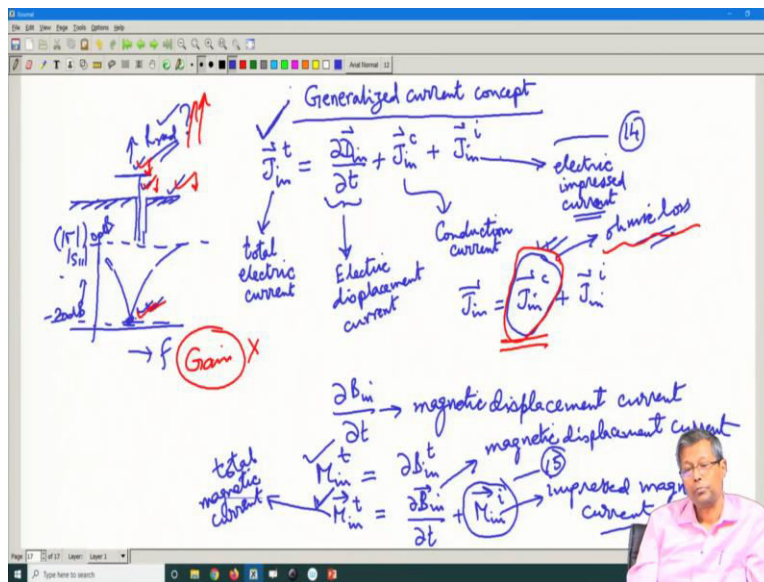 Journal
File Edit View Page Tools Options Help
Arial Normal 12
Generalized current concept
$\vec{J}_{in}^{t} = \frac{\partial \vec{D}_{in}}{\partial t} + \vec{J}_{in}^{c} + \vec{J}_{in}^{i}$
(14)
electric
impressed
current
total
electric
current
Electric
displacement
current
Conduction
current
ohmic loss
$\vec{J}_{in} = \vec{J}_{in}^{c} + \vec{J}_{in}^{i}$
↑
?
0dB
|S11|
-20dB
→ f
Gain X
$\frac{\partial B_{in}}{\partial t}$ → magnetic displacement current
magnetic displacement current
$M_{in}^{t} = \partial B_{in}^{t}$
(15)
total
magnetic
current
$\vec{M}_{in}^{t} = \frac{\partial \vec{B}_{in}}{\partial t} + \vec{M}_{in}^{i}$
impressed
current
Page 17 of 17 Layer: Layer 1
Type here to search